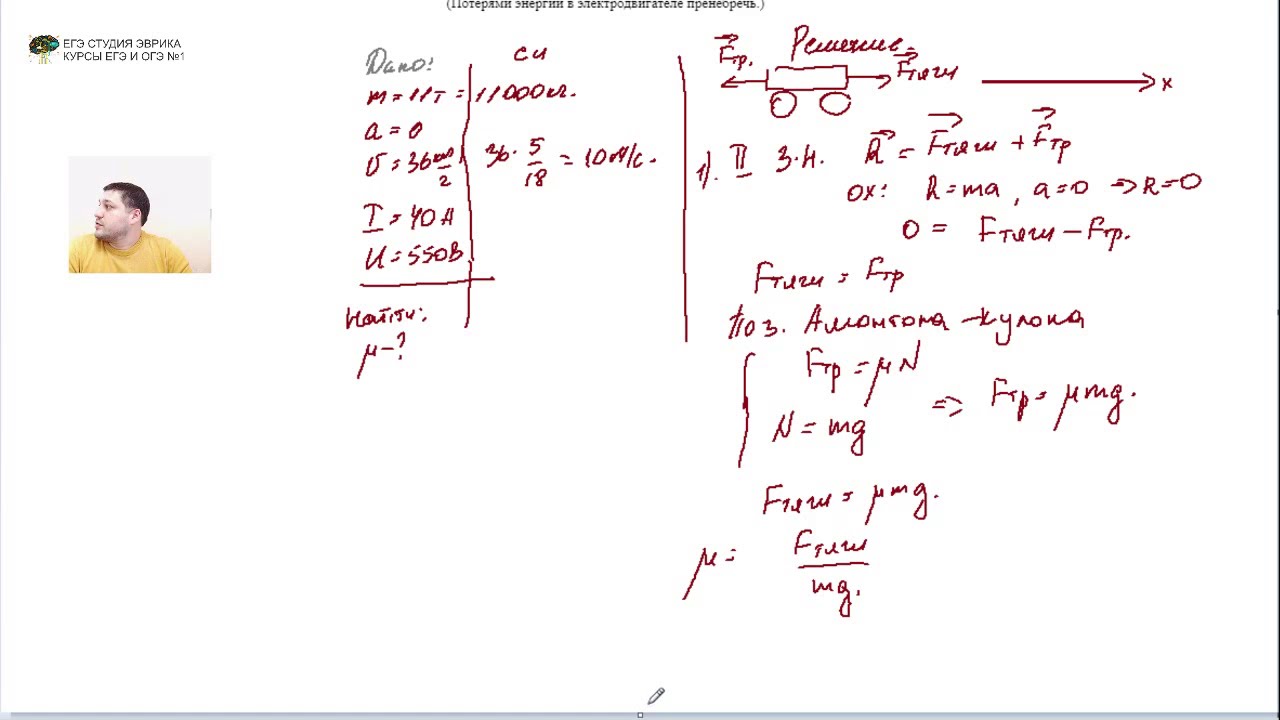 (Потерями энергии в электродвигателе пренебречь.)
ЕГЭ СТУДИЯ ЭВРИКА
КУРСЫ ЕГЭ И ОГЭ №1
Дано:
m = 11т =
a = 0
υ = 36 км/2
I = 40 А
U = 550В
Найти:
μ - ?
си
11000кг.
36 · 5/18 = 10 м/с.
Решение.
Fтр.
Fтяги
x
1). II З.Н. R = Fтяги + Fтр
ox: R = ma, a = 0 => R = 0
0 = Fтяги - Fтр.
Fтяги = Fтр
По з. Амонтона - кулона
Fтр = μN
N = mg
=> Fтр = μmg.
Fтяги = μmg.
μ = Fтяги/mg.